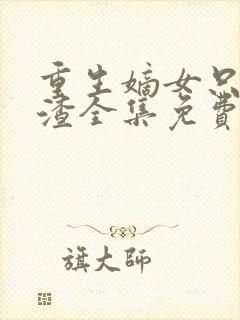 重生嫡女只
渣全集免费
旗大师